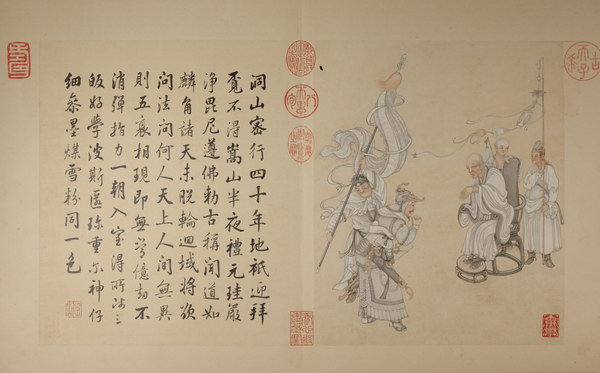 古希天子
洞山密行四十年地祇迎拜
覔不得嵩山半夜禮元珪嚴
淨毘尼遵佛勅古稱聞道如
麟角諸天未脫輪迴域將欲
問法問何人天上人間無異
則五衰相現即無常億劫不
消彈指力一朝入室得所三
皈好學波斯匿珍重尔神仔
細叅墨煤雪粉同一色